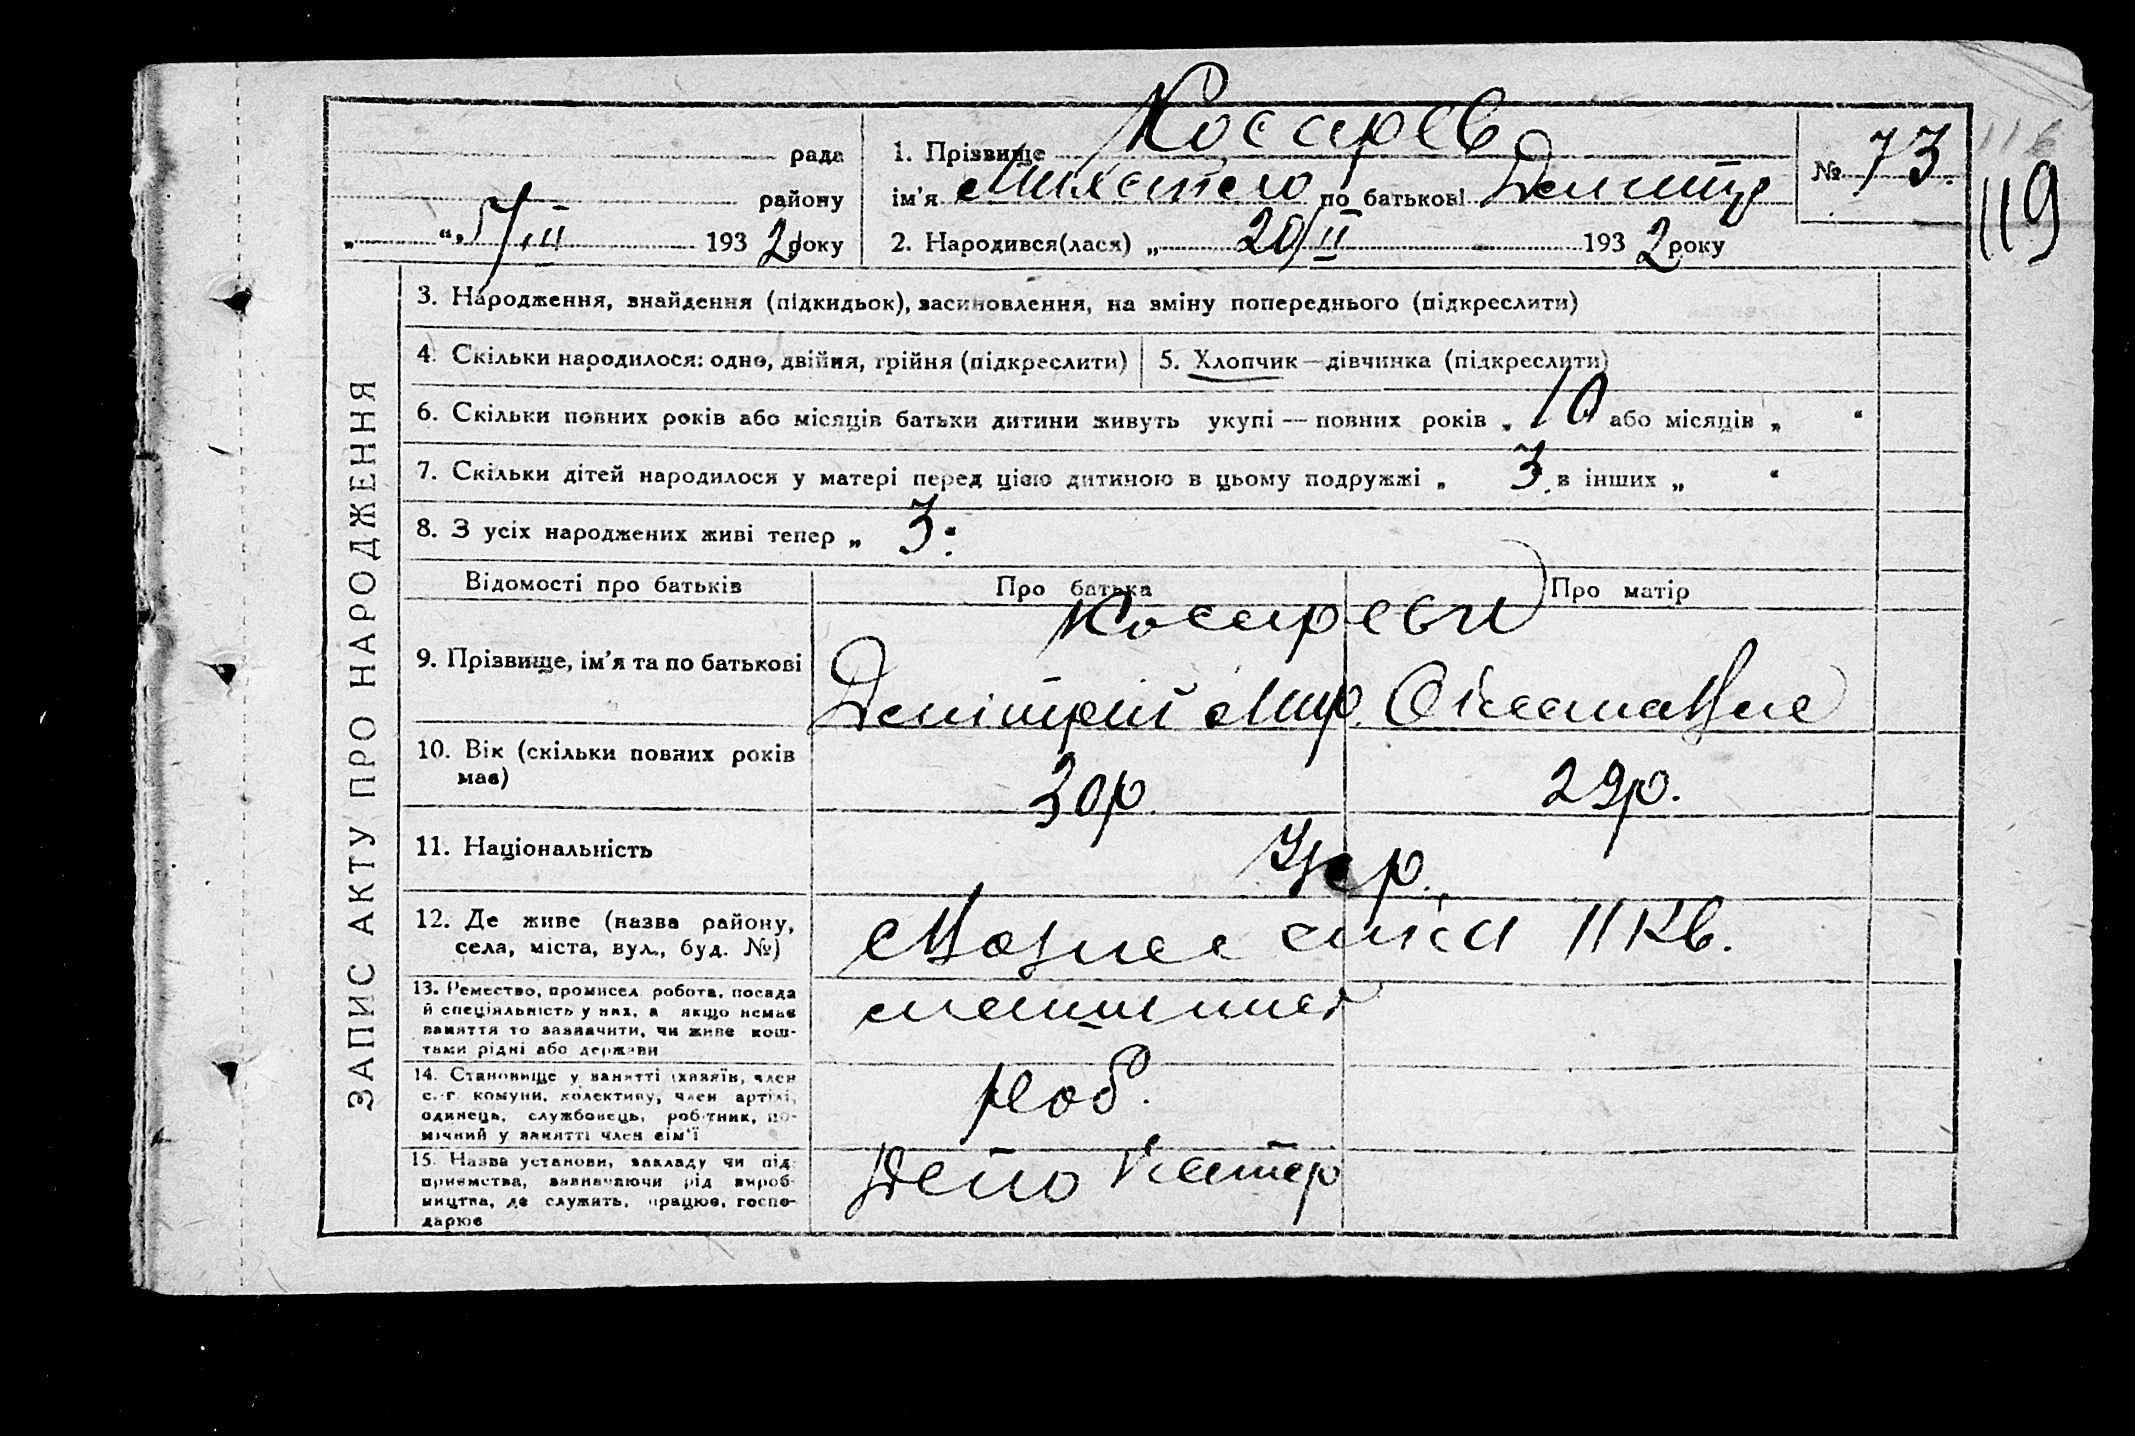 рада
району
„ “ 5/III 1932 року
1. Прізвище Косарев
ім'я по батькові Дмитр
2. Народився(лася) „ 20/II 1932 року
№ 73.
116
119
ЗАПИС АКТУ ПРО НАРОДЖЕННЯ
3. Народження, знайдення (підкидьок), засиновлення, на зміну попереднього (підкреслити)
4. Скільки народилося: одно, двійня, трійня (підкреслити)
5. Хлопчик — дівчинка (підкреслити)
6. Скільки повних років або місяців батьки дитини живуть укупі — повних років „ 10 або місяців „ “
7. Скільки дітей народилося у матері перед цією дитиною в цьому подружжі „ 3 в інших „ “
8. З усіх народжених живі тепер „ 3.“
Відомості про батьків
Про батька
Про матір
9. Прізвище, ім'я та по батькові
Косареви
Дмітрий Мир.
10. Вік (скільки повних років має)
30р.
29р.
11. Національність
Укр.
12. Де живе (назва району,
села, міста, вул., буд. №)
11 кв.
13. Ремество, промисел робота, посада
й спеціяльність у них, а якщо немає
заняття то зазначити, чи живе кош-
тами рідні або держави
машинист
14. Становище у занятті (хазяїн, член
с.-г. комуни, колективу, член артілі,
одинець, службовець, робітник, по-
мічний у занятті член сім'ї
роб.
15. Назва установи, закладу чи під-
приємства, зазначаючи рід вироб-
ництва, де служить, працює, госпо-
дарює
Депо